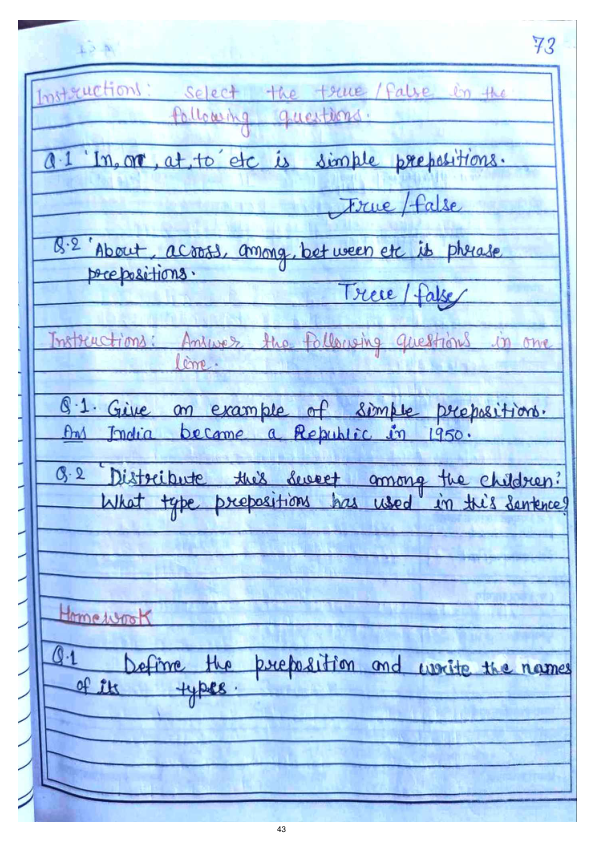 73
Instructions: Select the true/false in the
following questions.
Q.1 'In, on, at, to' etc is simple prepositions.
True/false
Q.2 'About, across, among, between etc is phrase
prepositions.
True/false
Instructions: Answer the following questions in one
line.
Q.1. Give an example of simple prepositions.
Ans India became a Republic in 1950.
Q.2 'Distribute this sweet among the children.'
What type prepositions has used in this sentence?
Homework
Q.1 Define the preposition and write the names
of its types.
43